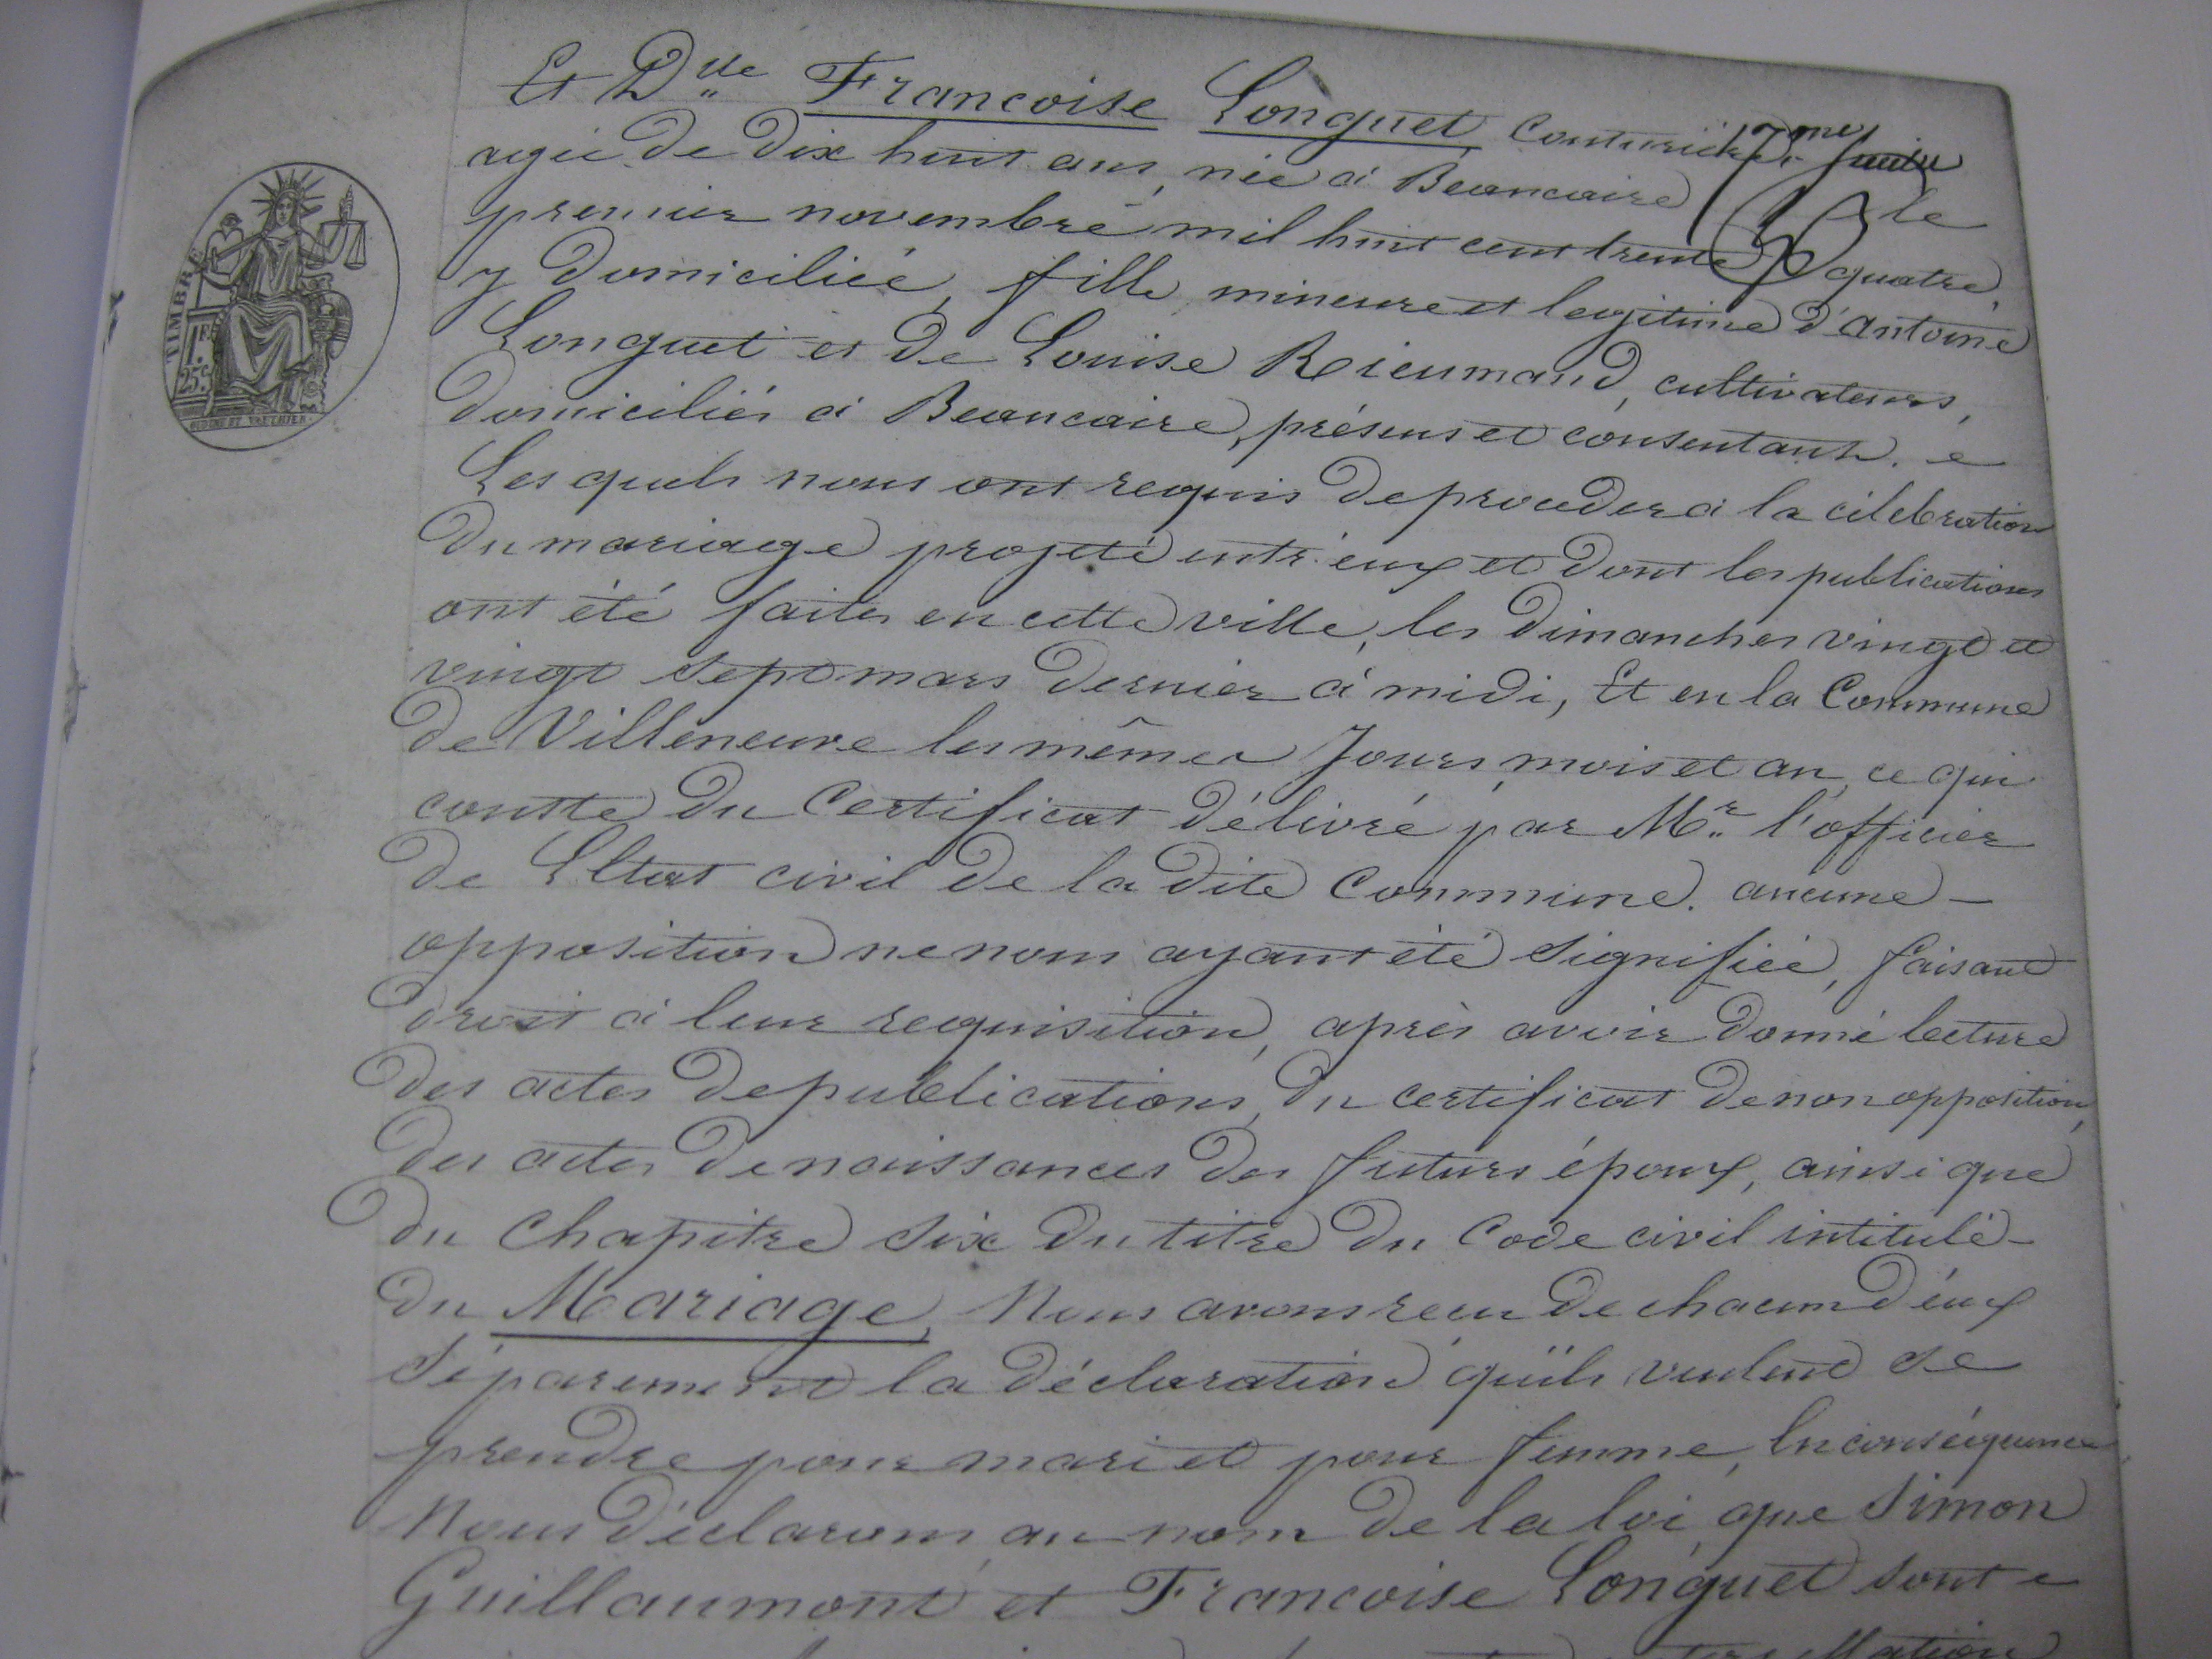 Et Dlle Françoise Longuet, Couturière,
17me feuille
agée de dix huit ans, née à Beaucaire le
premier novembre mil huit cent trente quatre,
y domiciliée, fille mineure et legitime d'antoine
Longuet et de Louise Rieumaud, cultivateurs,
domiciliés à Beaucaire, présens et consentants.
Les quels nous ont requis de proceder à la célébration
du mariage projeté entr'eux et dont les publications
ont été faites en cette ville, les dimanches vingt et
vingt sept mars dernier à midi, Et en la Commune
de Villeneuve les mêmes Jours, mois et an, ce qui
conste du Certificat délivré par Mr. l'officier
de L'Etat civil de la dite Commune. aucune
opposition ne nous ayant été signifiée, faisant
droit à leur requisition, après avoir donné lecture
des actes de publications, du certificat de non opposition,
des actes de naissances des futurs époux, ainsi que
du Chapitre six du titre du Code civil intitulé
du Mariage, Nous avons recu de chacun d'eux
séparement la déclaration qu'ils veulent se
prendre pour mari et pour femme, En conséquence
Nous déclarons, au nom de la loi, que Simon
Guillaumont et Francoise Longuet sont
TIMBRE
1F.
25c.